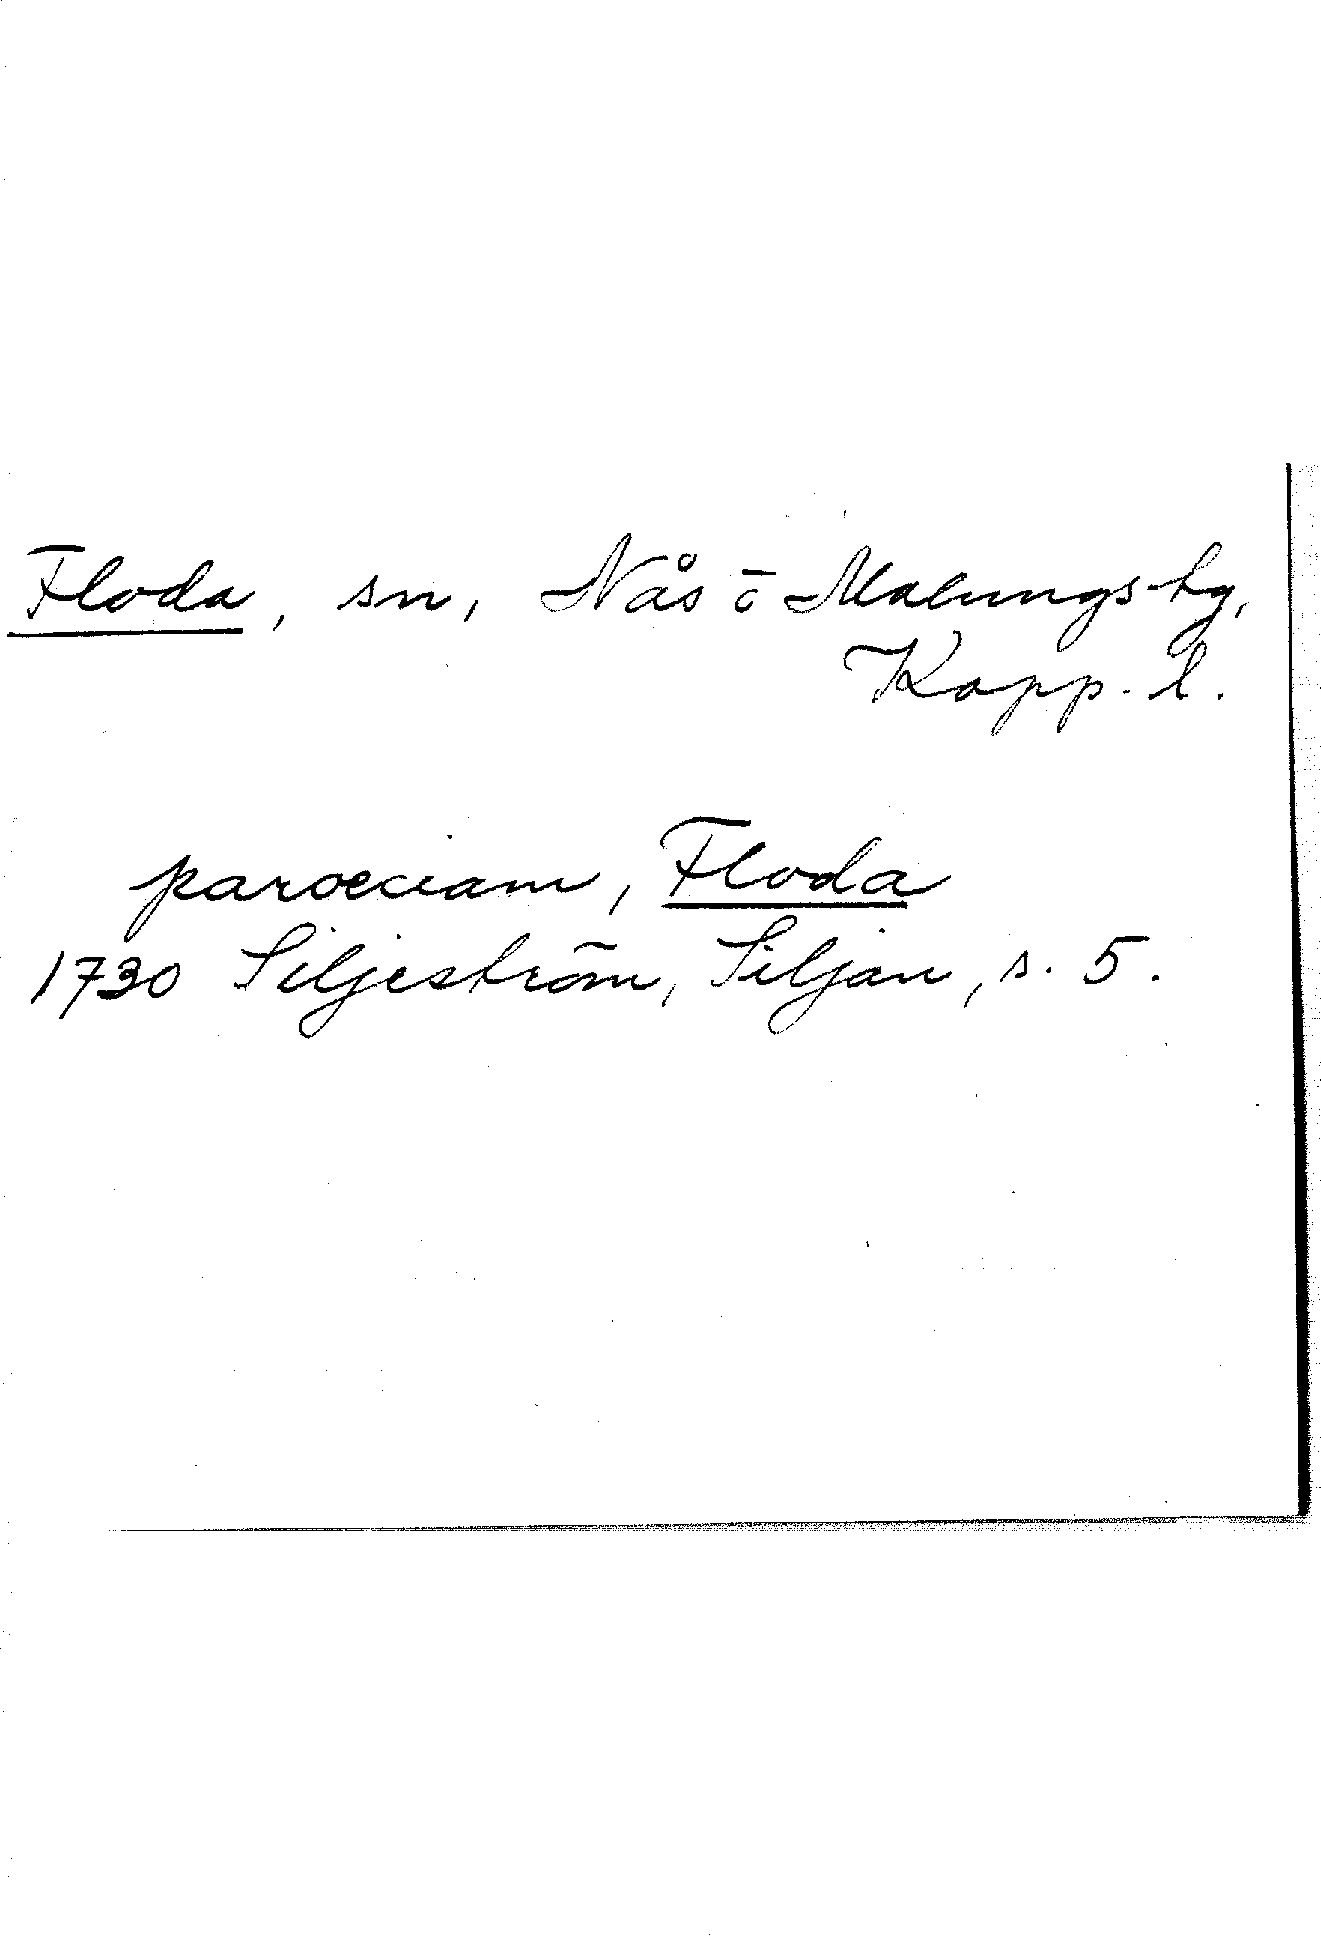 Floda, sn, Nås ō Malungs hg,
Kopp. l.
paroeciam, Floda
1730 Siljeström, Siljan, s. 5.